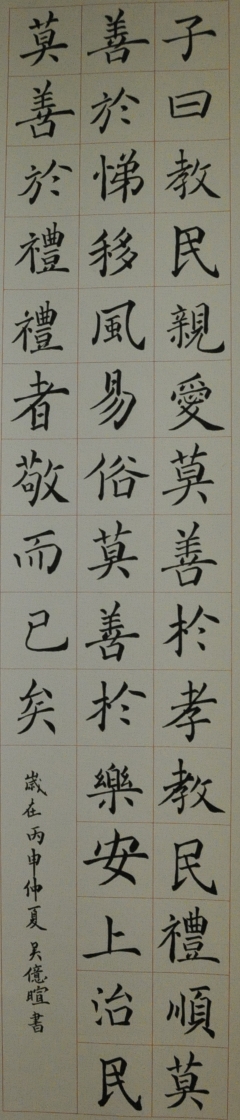 子曰教民親愛莫善於孝教民禮順莫
善於悌移風易俗莫善於樂安上治民
莫善於禮禮者敬而已矣
歲在丙申仲夏吳億暄書